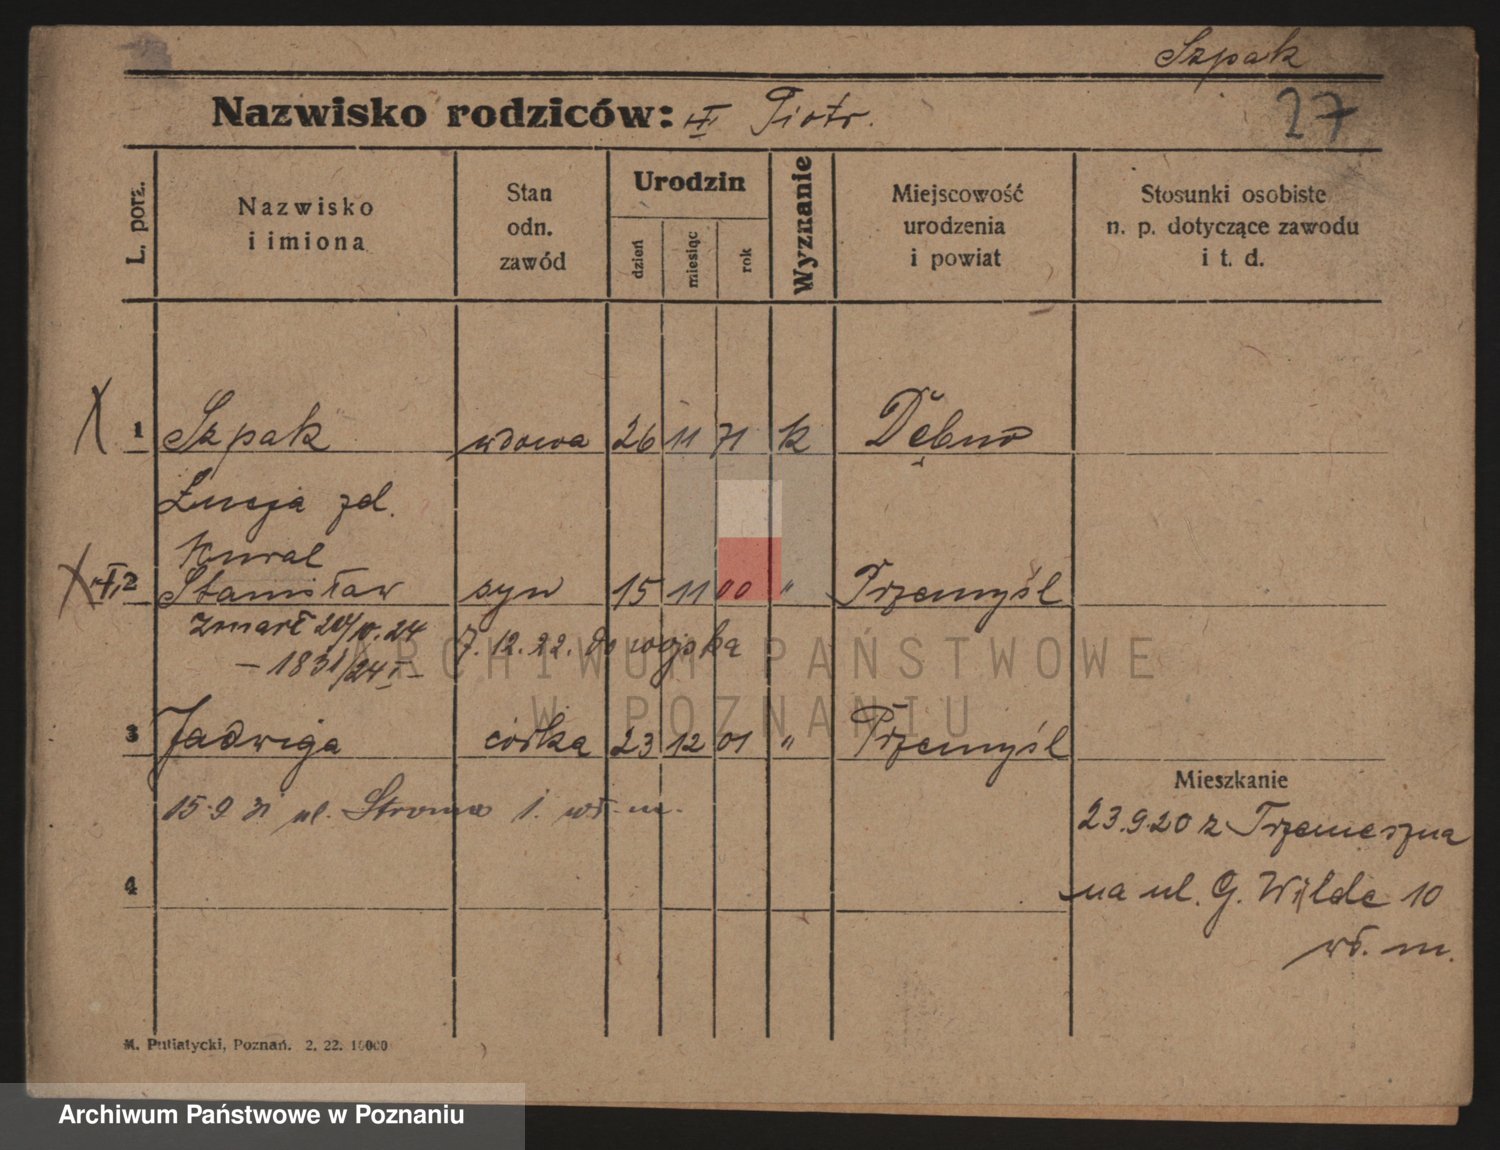 Szpak
27
Nazwisko rodziców: Piotr.
L. porz.
Nazwisko i imiona
Stan odn. zawód
Urodzin
dzień
miesiąc
rok
Wyznanie
Miejscowość urodzenia i powiat
Stosunki osobiste n. p. dotyczące zawodu i t. d.
X 1 Szpak wdowa 26 11 71 k Dębno
Łucja zd.
X 2 Stanisław syn 15 11 00 " Przemyśl
zmarł 24 7.12.22. do wojska
- 1831/24 I -
3 Jadwiga córka 23 12 01 " Przemyśl
15.9 31 ul. Stroma 1. wł. m.
4
Mieszkanie
23.9.20 z Trzemeszna
na ul. G. Wilde 10
wł. m.
M. Putiatycki, Poznań. 2. 22. 10000
ARCHIWUM PAŃSTWOWE
W POZNANIU
Archiwum Państwowe w Poznaniu